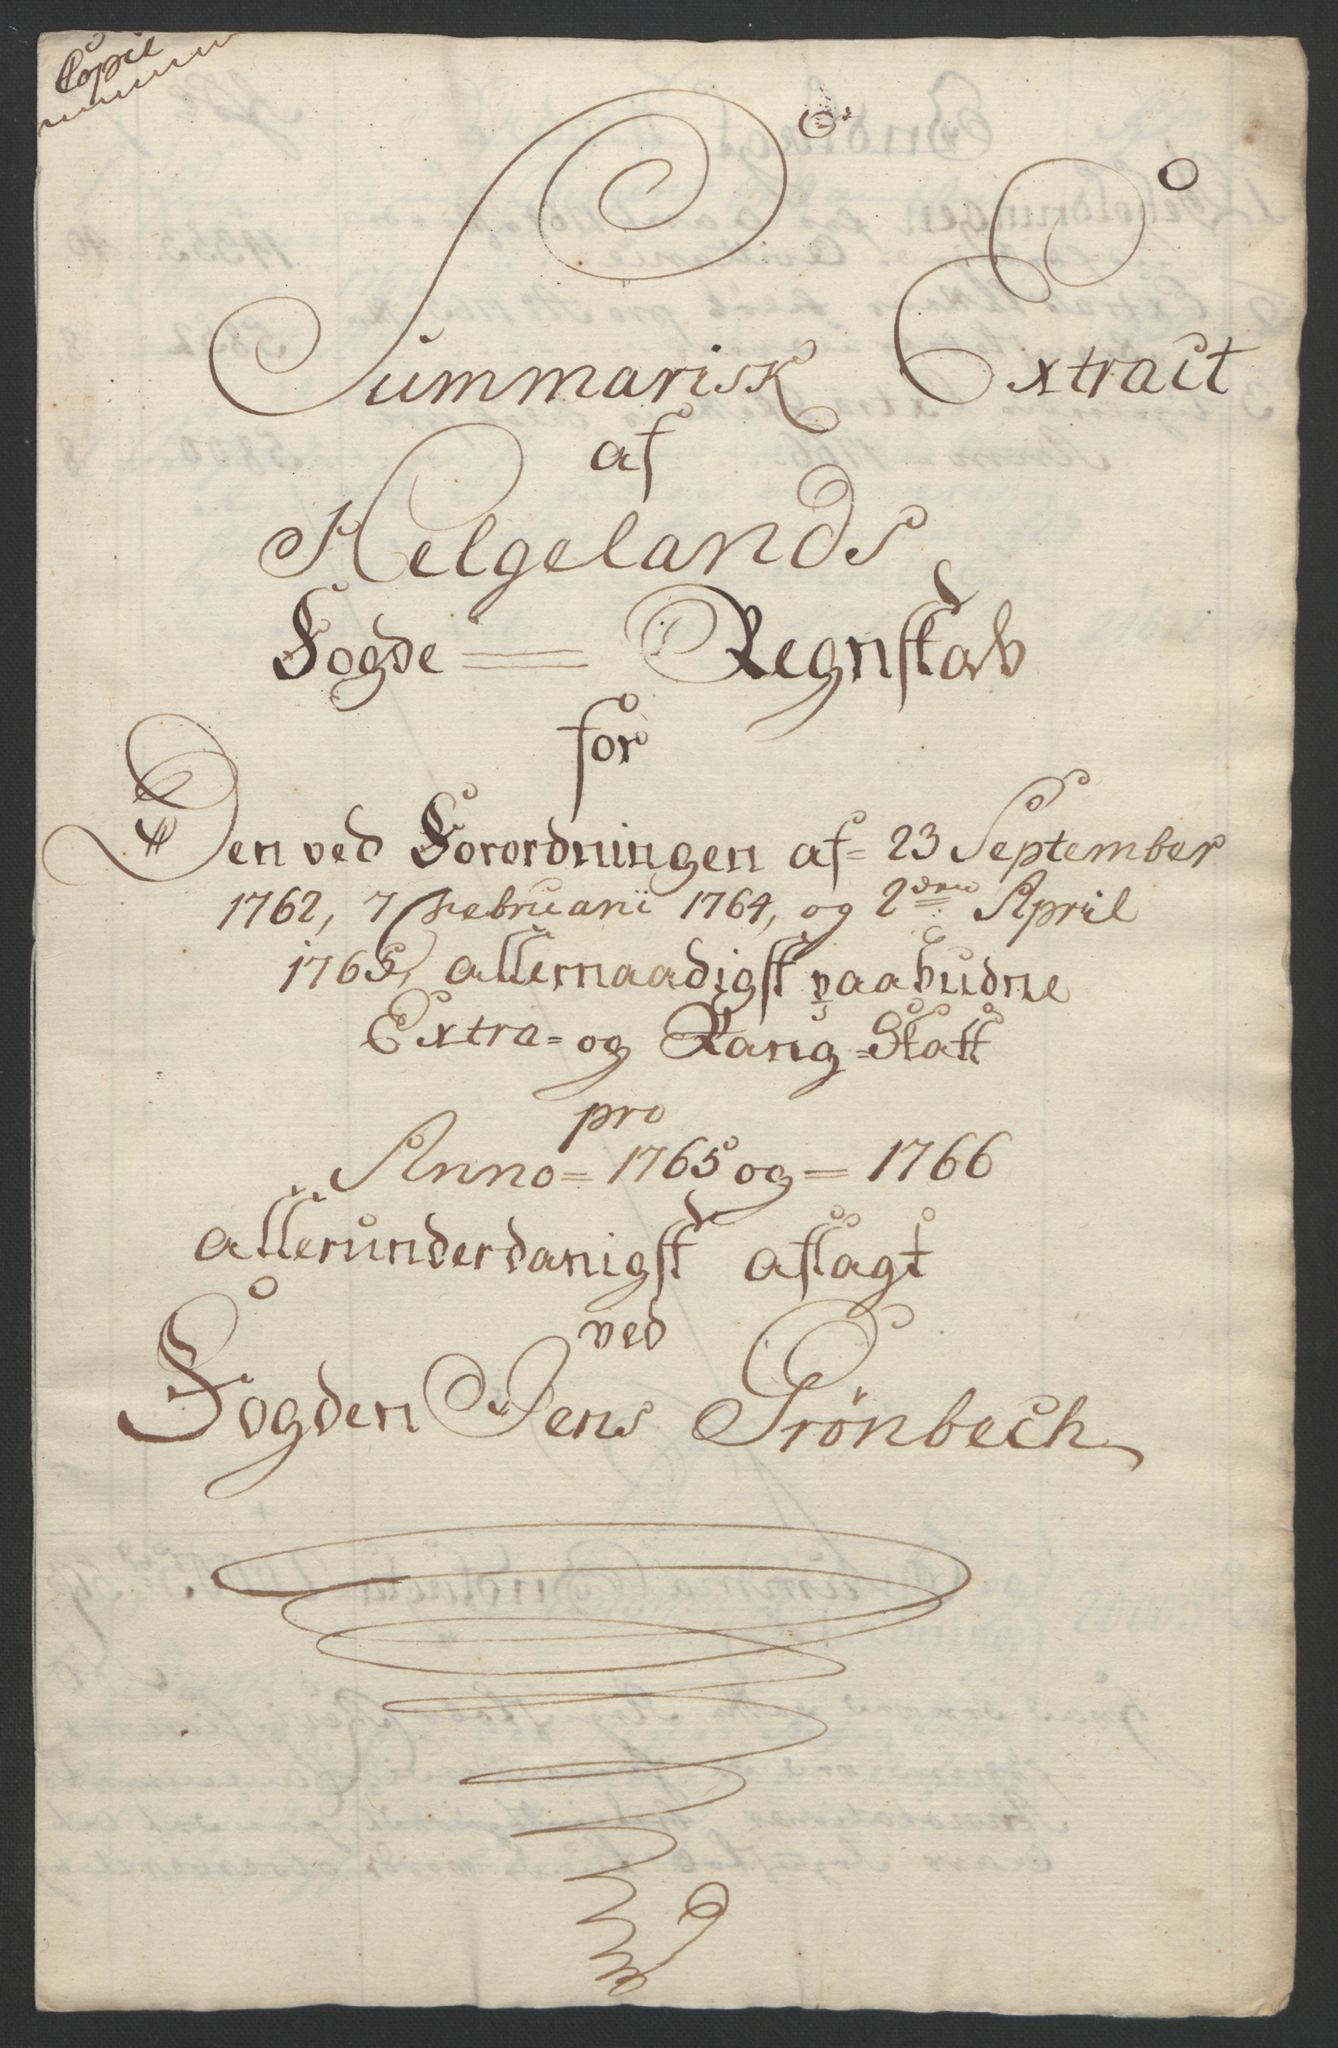 Copie
Summarisk Extract
af
Helgelands
Fogde = Regnskab
for
Den ved Forordningen af 23 September
1762, 7 Februarii 1764, og 2den April
1765, allernaadigst paabudne
Extra= og Rang=Skatt
pro
Anno = 1765 og = 1766
allerunderdanigst aflagt
ved
Fogden Jens Grönbech